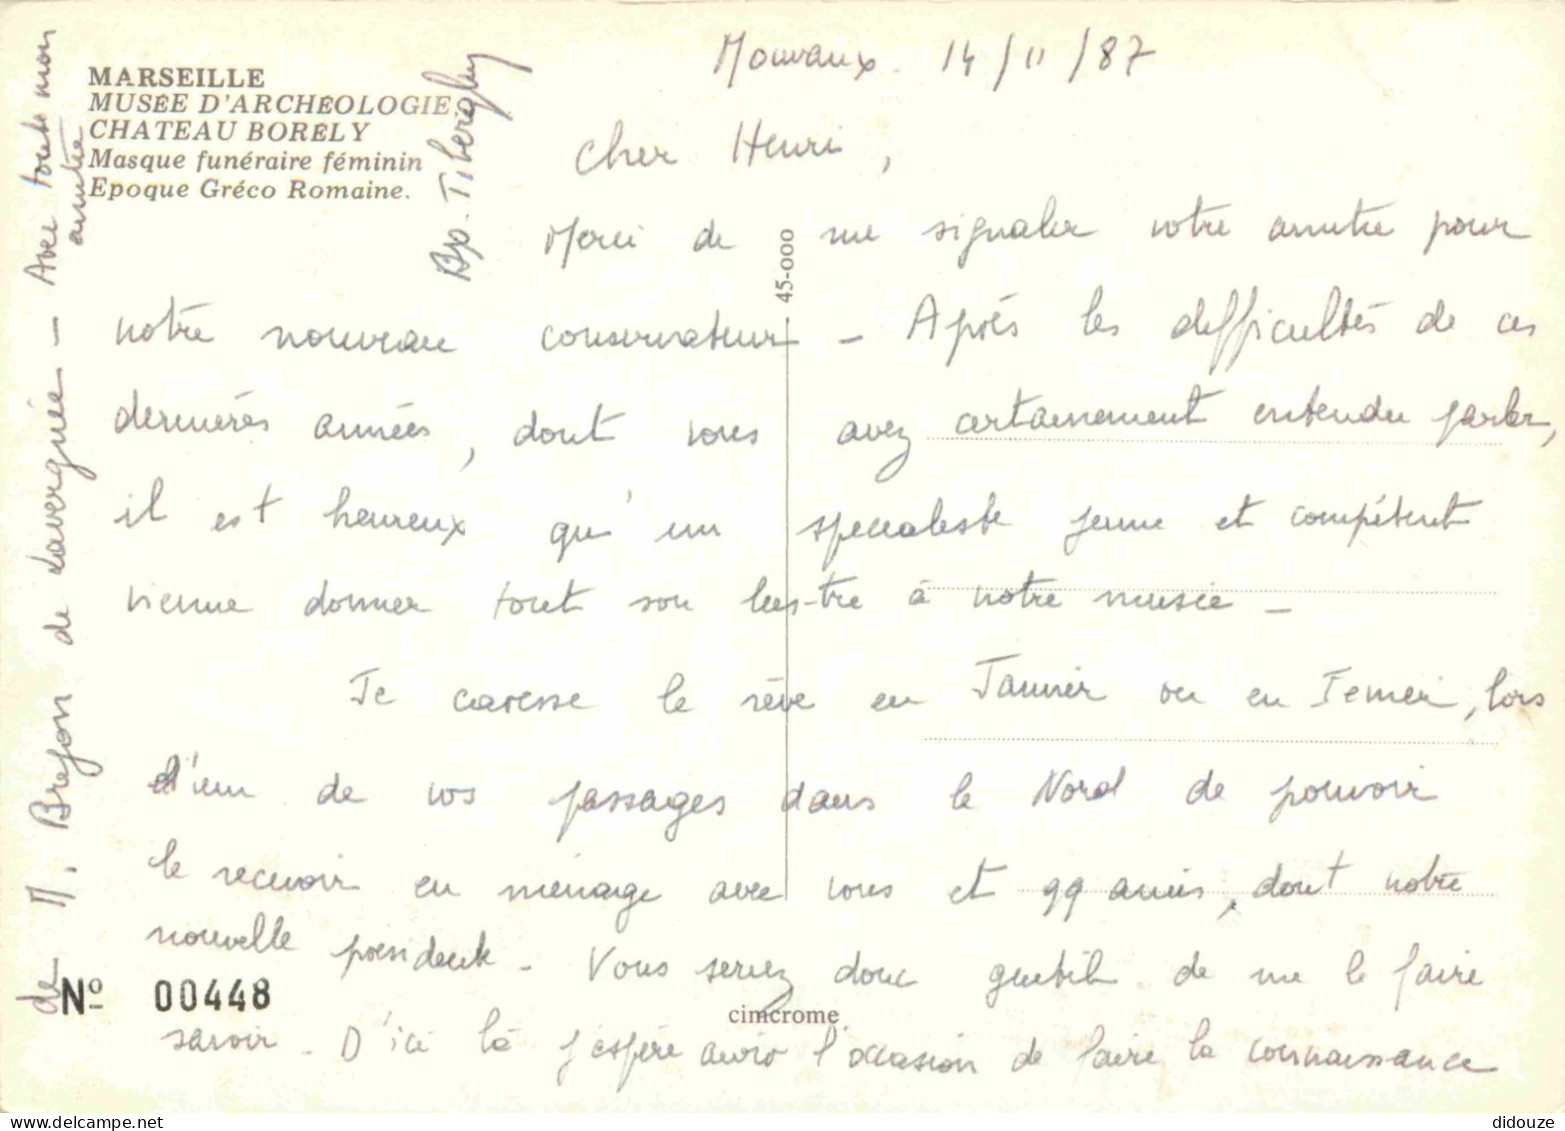 MARSEILLE
MUSÉE D'ARCHÉOLOGIE
CHATEAU BORELY
Masque funéraire féminin
Epoque Gréco Romaine.
45-000
Mouvaux. 14/11/87
Cher Henri,
Merci de me signaler votre amitié pour
notre nouveau conservateur - Après les difficultés de ces
dernières années, dont vous avez certainement entendu parler,
il est heureux qu'un spécialiste jeune et compétent
vienne donner tout son lustre à notre musée -
Je caresse le rêve en Janvier ou en Février, lors
d'un de vos passages dans le Nord de pouvoir
le recevoir en ménage avec vous et qq amis, dont notre
nouvelle présidente - Vous seriez donc gentil de me le faire
savoir - D'ici là j'espère avoir l'occasion de faire la connaissance
de M. Brejon de Lavergnée - Avec toute mon
amitié
Tiberghien
Nº 00448
cimcrome
didouze